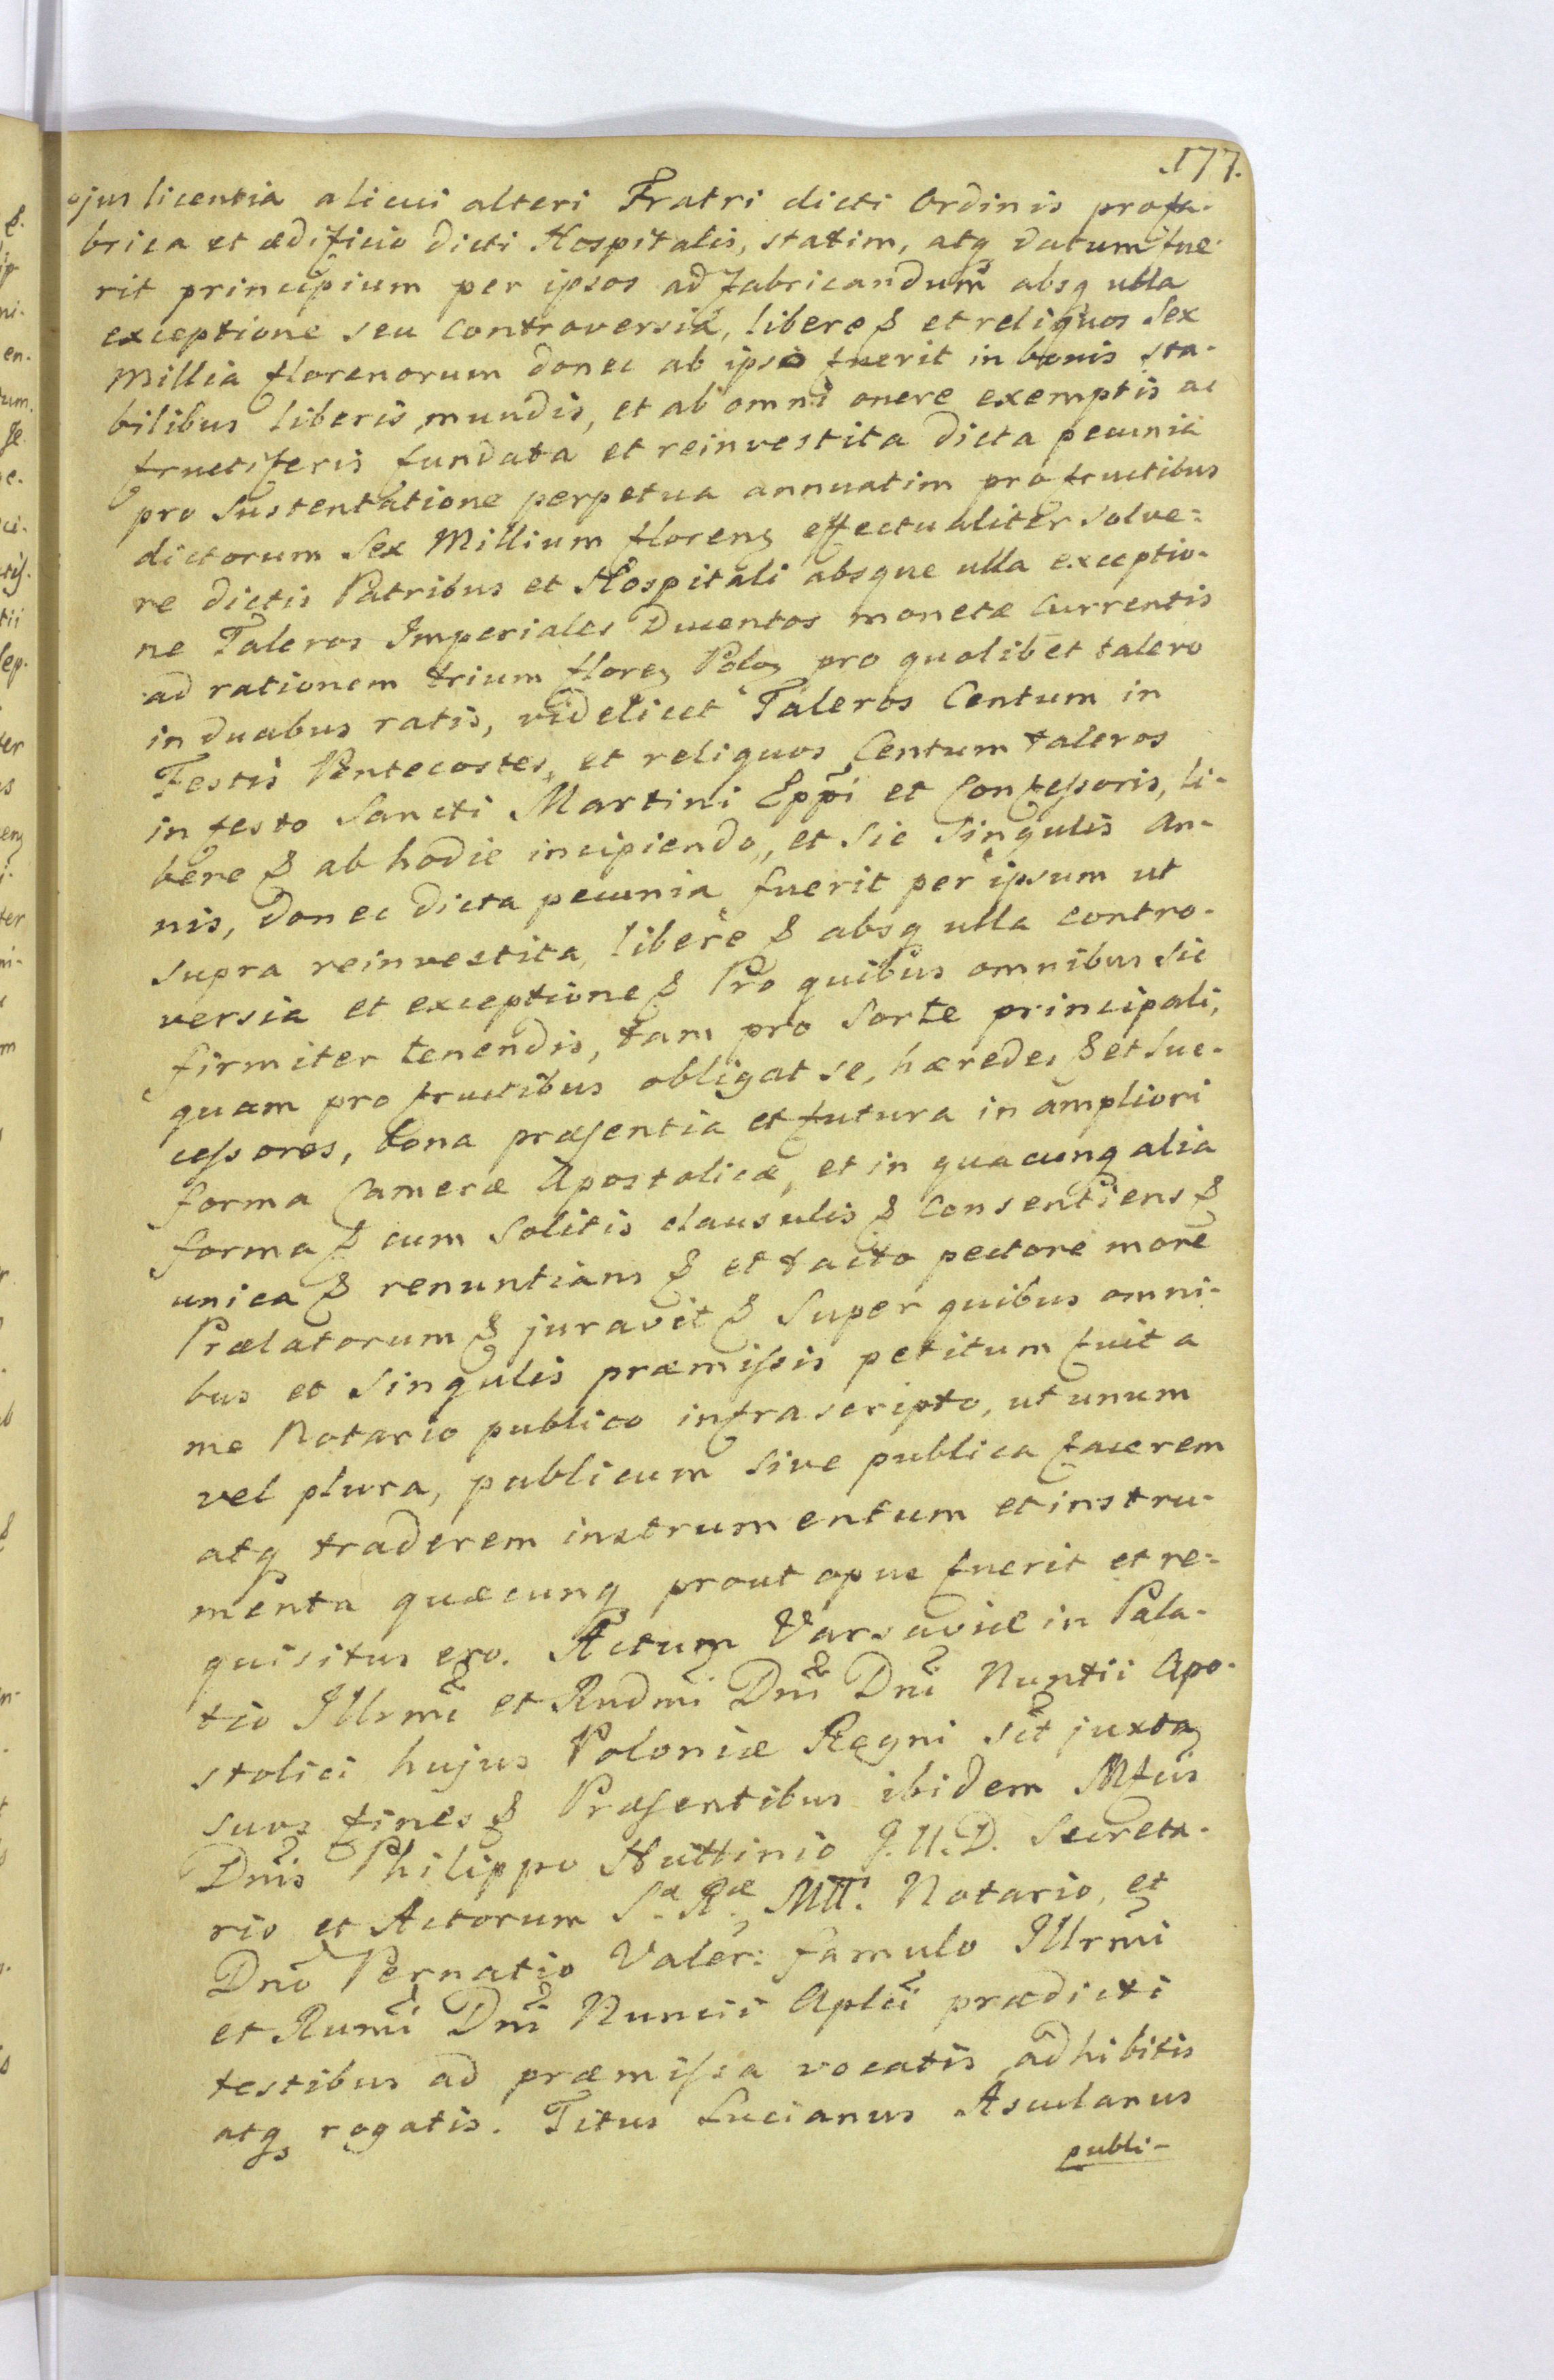 177.
ojus licentia alicui alteri Fratri dicti Ordinis pro fa-
brica et ædificio dicti Hospitalis, statim, atq datum fue-
rit principium per ipsos ad fabricandum absq ulla
exceptione seu controversia, libere & et reliquos Sex
Millia florenorum donec ab ipso fuerit in bonis sta-
bilibus liberis, mundis, et ab omni onere exemptis ac
fructiferis fundata et reinvestita dicta pecunia
pro sustentatione perpetua annuatim pro fructibus
dictorum Sex Millium floreng effectualiter solve=
re dictis Patribus et Hospitali absque ulla exceptio-
ne Taleros Imperiales Ducentos monetæ Currentis
ad rationem trium floreg Polog pro quolibet talero
in duabus ratis, videlicet Taleros Centum in
Festis Pentecostes, et reliquos Centum taleros
in festo Sancti Martini Epp̄i et Confessoris, li-
bere & ab hodie incipiendo, et sic singulis an-
nis, donec dicta pecunia fuerit per ipsum ut
supra reinvestita, libere & absq ulla contro-
versia et exceptione & Pro quibus omnibus sic
firmiter tenendis, tam pro Sorte principali,
quam pro fructibus obligat se, hæredes & et suc-
cessores, bona præsentia et futura in ampliori
forma Cameræ Apostolicæ, et in quacunq alia
forma & cum solitis clausulis & Consentiens &
unica & renuntians & et tacto pectore more
Prælatorum & juravit & Super quibus omni-
bus et singulis præmissis petitum fuit a
me Notario publico infrascripto, ut unum
vel plura, publicum sive publica facerem
atq traderem instrumentum et instru-
menta quæcunq prout opus fuerit et re=
quisitus ero. Actum Varsaviæ in Pala-
tio Illrmi et Rndmi Dni Dni Nuntii Apo-
stolici hujus Poloniæ Regni sit juxta
suos fines & Præsentibus ibidem Mfcis
Dnis Philippo Huttinio J.U.D. Secreta-
rio et Actorum Sæ Ræ Mtt. Notario, et
Dno Pernatio Valer: famulo Illrmi
et Rumi Dni Nuncii Aplci prædicti
testibus ad præmissa vocatis, adhibitis
atq rogatis. Titus Lucianus Asculanus
publi-